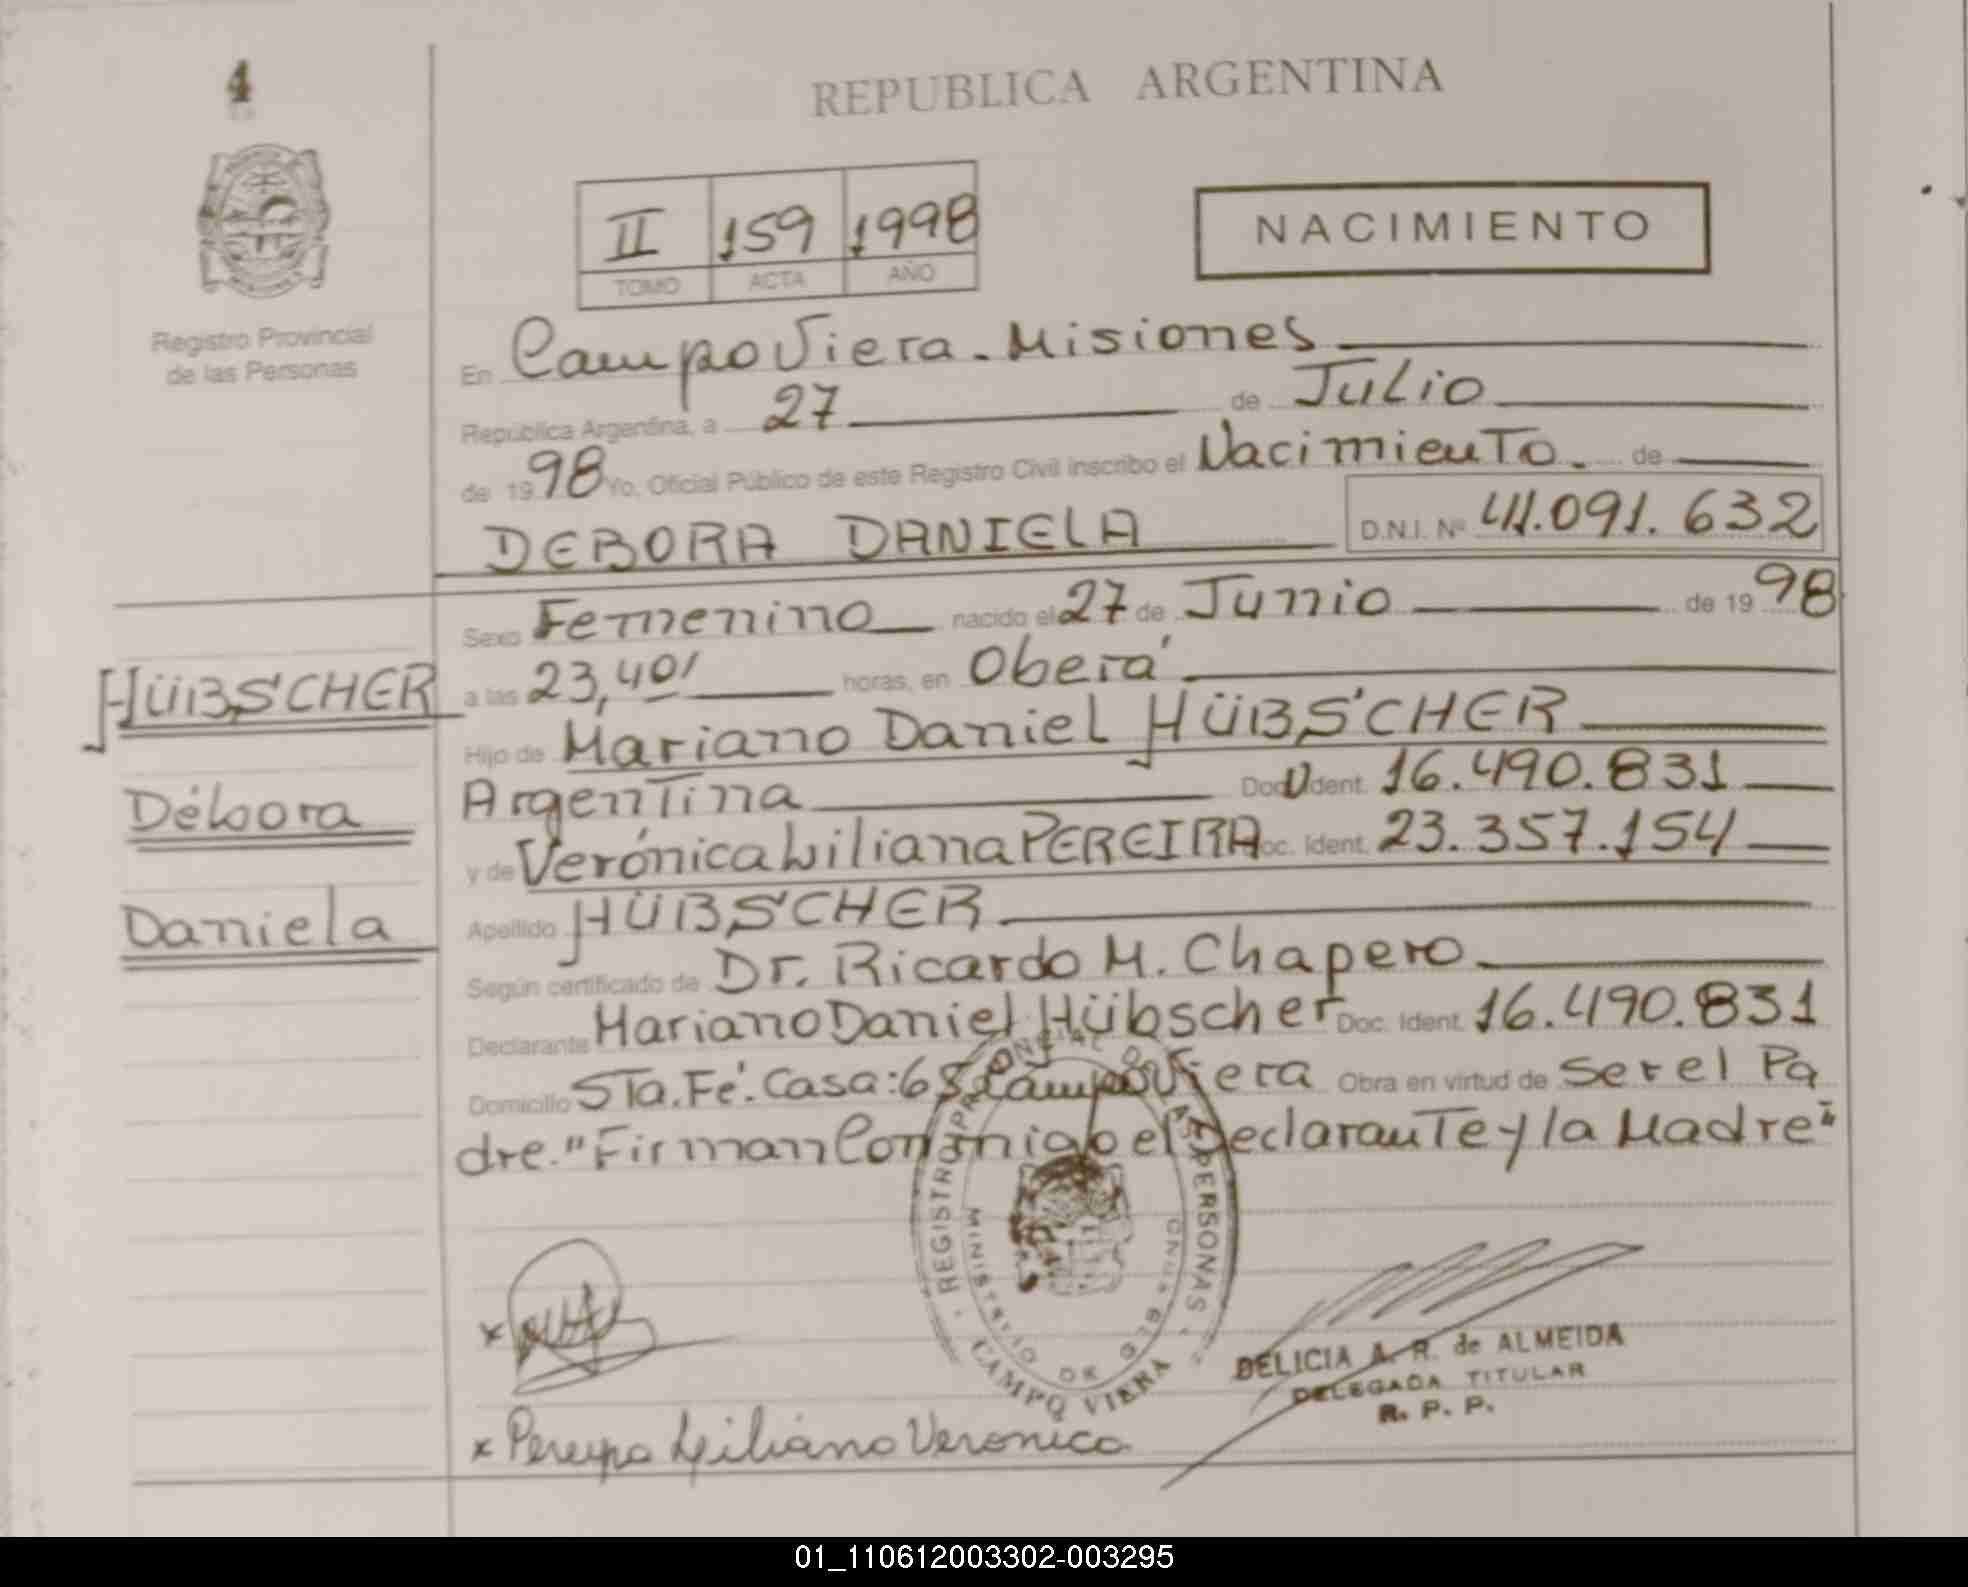 4
REPUBLICA ARGENTINA
II 159 1998
TOMO ACTA AÑO
NACIMIENTO
Registro Provincial
de las Personas
En Campo Viera - Misiones
República Argentina, a 27 de Julio
de 1998 Yo, Oficial Público de este Registro Civil inscribo el Nacimiento. de
DEBORA DANIELA D.N.I. Nº 41.091.632
Sexo Femenino nacido el 27 de Junio de 1998
HÜBSCHER
a las 23,40' horas, en Oberá
Hijo de Mariano Daniel HÜBSCHER
Débora
Argentina Doc. Ident. 16.490.831
y de Verónica Liliana PEREIRA Doc. Ident. 23.357.154
Daniela
Apellido HÜBSCHER
Según certificado de Dr. Ricardo M. Chapero
Declarante Mariano Daniel Hübscher Doc. Ident. 16.490.831
Domicilio Sta. Fé. Casa: 68 Campo Viera Obra en virtud de ser el Pa
dre. "Firman Conmigo el Declarante y la Madre"
REGISTRO PROVINCIAL DE LAS PERSONAS
MINISTERIO DE GOB
CAMPO VIERA
DELICIA A. R. de ALMEIDA
DELEGADA TITULAR
R. P. P.
x
x Pereyra Liliana Veronica
01_110612003302-003295